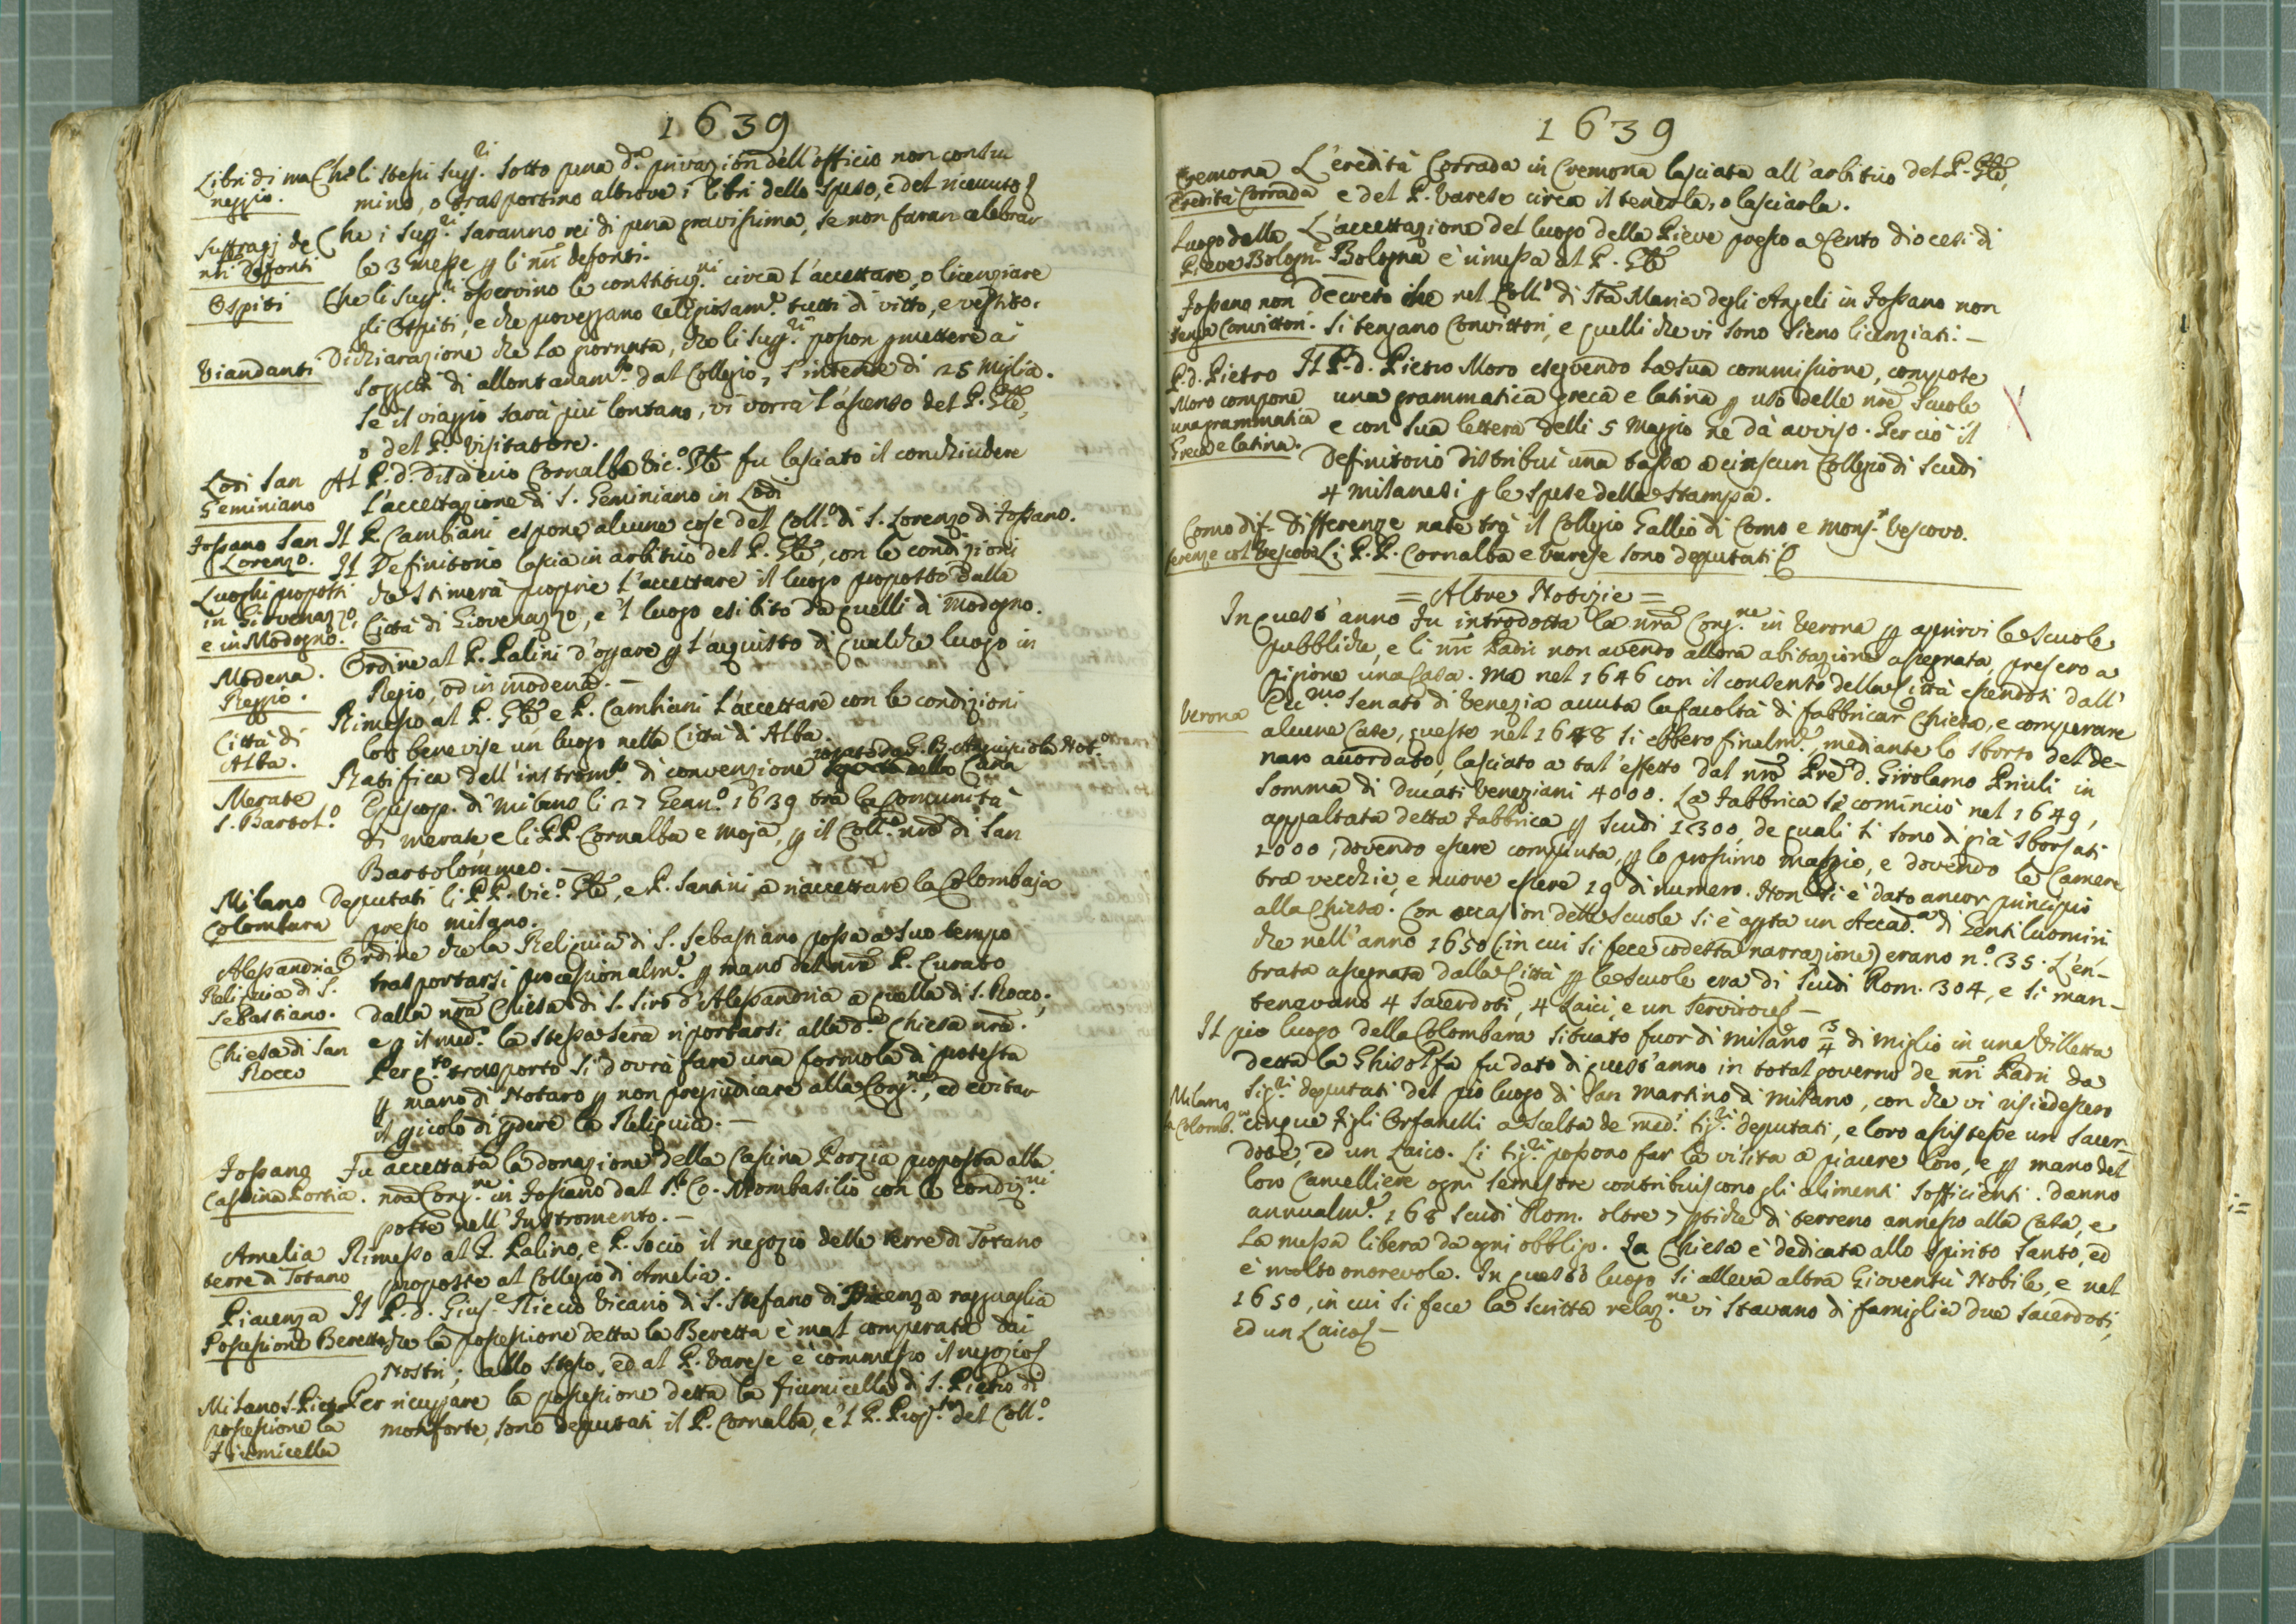 1639
Libri di ma Che li stessi Supri. sotto pena d.a privazion dell'officio non consu
neggio. mino, o trasportino altrove i libri dello speso, e del ricevuto
Suffragj de Che i Supri. saranno rei di pena gravissima, se non faran celebrar
nri defonti le 3 messe p li nri defonti.
Ospiti Che li Supri. osservino le constituzni circa l'accettare, o licenziare
gli Ospiti, e che proveggano religiosam.e tutti di vitto, e vestito.
Viandanti Dichiarazione che la giornata, che li Supri. posson pmettere a
soggeti di allontanam.to dal Collegio, s'intende di 25 miglia.
Se il viaggio sarà più lontano, vi vorrà l'assenso del P. Gle,
o del P. Visitatore.
Lodi San Al P. d. Cornalba Vic.o Gle fu lasciato il conchiudere
Geminiano l'accettazione di S. Geminiano in Lodi
Fossano San Il P. Cambiani espone alcune cose del Coll.o di S. Lorenzo di Fossano.
Lorenzo. Il Definitorio lascia in arbitrio del P. Gle, con le condizioni
Luoghi proposti che stimerà proprie l'accettare il luogo proposto dalla
in Giovenazzo, Città di Giovenazzo, e 'l luogo esibito da quelli di Modogno.
e in Modogno.
Modena. Ordine al P. Palini d'oprare p l'acquisto di qualche luogo in
Reggio. Regio, od in modena. —
Città di Rimesso al P. Gle e P. Cambiani l'accettare con le condizioni
Alba. loro benevise un luogo nella Città di Alba.
rogato da G. B. Not.o
Merate Ratifica dell'instrom.to di convenzione Curia
S. Bartol.o Episcop. di Milano li 27 Genn.o 1639 tra la Comunità
di merate e li PP. Cornalba e Moja, p il Coll.o nro di San
Bartolommeo. —
Milano Deputati li PP. Vic.o Gle, e P. Santini a riaccettare la Colombaja
Colombara presso milano.
Alessandria Ordine che la Reliquia di S. Sebastiano possa a suo tempo
Reliquia di S. trasportarsi processionalm.e p mano del nro P. Curato
Sebastiano. dalla nra Chiesa di S. Siro d'Alessandria a quella di S. Rocco;
Chiesa di San e p il med.o la stessa sera riportarsi alla d.a Chiesa nra.
Rocco Per q.to trasporto si dovrà fare una formola di protesta
p mano di Notaro p non pregiudicare alla Cong.ne, ed evitar
il pericolo di pdere la Reliquia. —
Fossano Fu accettata la donazione della Cascina Porzia proposta alla
Cascina Portia. nra Cong.ne in Fossano dal S.r Co. Mombasilio con le condizni
poste nell'Instromento. —
Amelia Rimesso al P. Palino, e P. Socio il negozio delle terre di Totano
terre di Totano proposte al Collegio di Amelia.
Piacenza Il P. d. Gius.e Riccio Vicario di S. Stefano di Piacenza ragguaglia
Possessione Beretta che la possessione detta la Beretta è mal comperata dai
Nostri; allo stesso, ed al P. Varese è commesso il negozio
Milano S. Pietro Per ricuprare la possessione detta la Fiumicella di S. Pietro di
possessione la monforte, sono deputati il P. Cornalba, e 'l P. Prop.to del Coll.o
Fiumicella
1639
Cremona L'eredità Corrada in Cremona lasciata all'arbitrio del P. Gle,
Eredità Corrada e del P. Varese circa il tenerla, o lasciarla.
Luogo della L'accettazione del luogo della Pieve presso a Cento diocesi di
Pieve Bologn.e Bologna è rimessa al P. Gle
Fossano non Decreto che nel Coll.o di Sta Maria degli Angeli in Fossano non
tenga Convittori. si tengano Convittori, e quelli che vi sono sieno licenziati. —
P. d. Pietro Il P. d. Pietro Moro eseguendo la sua commissione, compose
Moro compone una grammatica greca e latina p uso delle nre scuole
una grammatica e con sua lettera delli 5 Maggio ne dà avviso. Per ciò il
Greca e latina. Definitorio distribuì una tassa a ciascun Collegio di scudi
4 milanesi p le spese della stampa.
Como dif- Differenze nate trà il Collegio Gallio di Como e Mons.r Vescovo.
ferenze col Vescovo Li P.P. Cornalba e Varese sono deputati
= Altre Notizie =
In quest'anno fu introdotta la nra Cong.ne in Verona p aprirvi le scuole
pubbliche, e li nri Padri non avendo allora abitazione assegnata, presero a
pigione una casa. Ma nel 1646 con il consento della Città essendosi dall'
Verona Ecc.mo Senato di Venezia avuta la facoltà di fabbricar Chiesa, e comperare
alcune case, queste nel 1648 si ebbero finalm.e mediante lo sborso del de-
naro accordato, lasciato a tal'effetto dal nro Pre d. Girolamo Priuli in
somma di Ducati Veneziani 4000. La fabbrica si cominciò nel 1649,
appaltata detta fabbrica p scudi 1300, de quali si sono di già sborsati
1000, dovendo essere compiuta p lo prossimo maggio, e dovendo le Camere
tra vecchie, e nuove essere 19 di numero. Non si è dato ancor principio
alla Chiesa. Con occasion delle scuole si è apta un Accad.a di Gentiluomini
che nell'anno 1650 (in cui si fece codesta narrazione) erano n.o 35. L'en-
trata assegnata dalla Città p le scuole era di scudi Rom. 304, e si man-
tenevano 4 sacerdoti, 4 Laici, e un Servitore —
Il pio luogo della Colombara situato fuor di milano 3/4 di miglio in una villetta
detta la Ghisolfa fu dato di quest'anno in total governo de nri Padri da
Milano Sig.ri deputati del pio luogo di San Martino di Milano, con che vi risiedessero
Colomb.a cinque figli Orfanelli a scelta de med.i Sig.ri deputati, e loro assistesse un sacer-
dote, ed un Laico. Li Sig.ri possono far la visita a piacere loro, e p mano del
loro Cancelliere ogni semestre contribuiscono gli alimenti sofficienti. Danno
annualm.e 168 scudi Rom. oltre 7 ptiche di terreno annesso alla casa, e
la messa libera da ogni obbligo. La Chiesa è dedicata allo Spirito Santo, ed
è molto onorevole. In questo luogo si alleva altra Gioventù Nobile, e nel
1650, in cui si fece la scritta relaz.ne vi stavano di famiglia due sacerdoti,
ed un Laico —